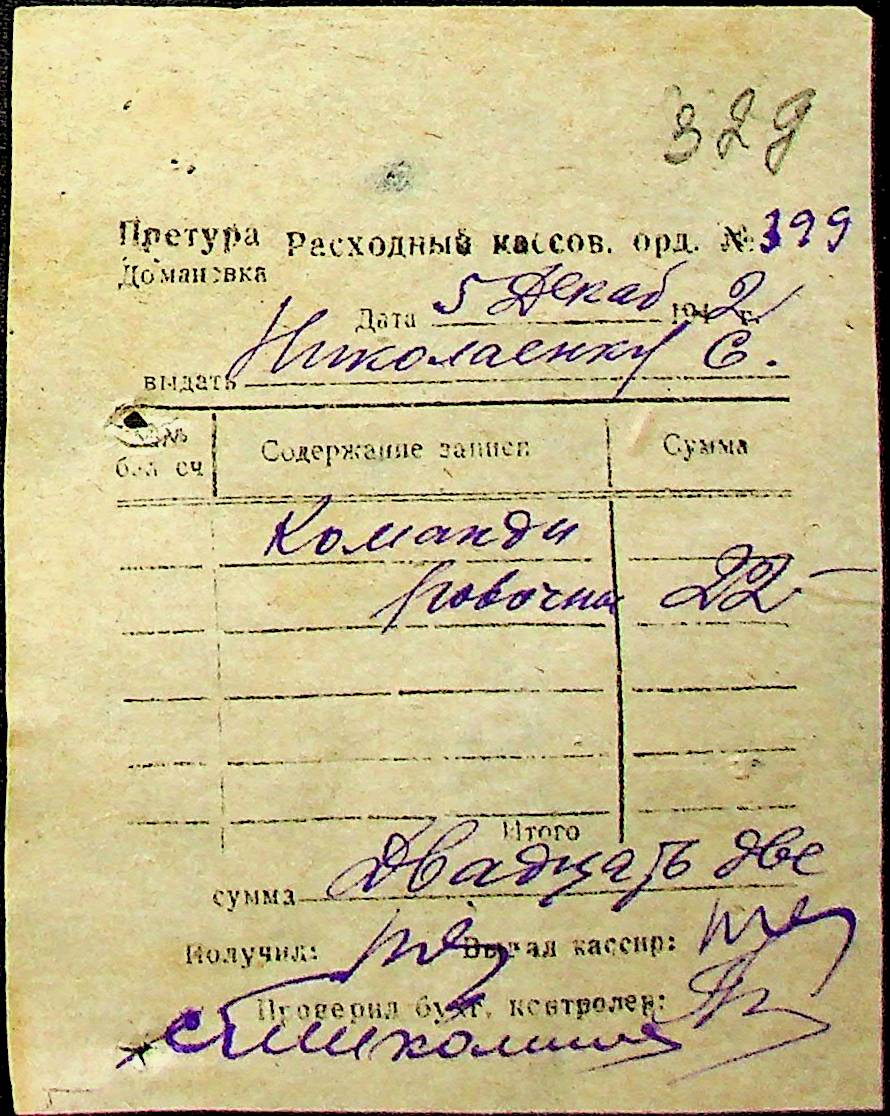 329
Претура Расходный кассов. орд. № 399
Домановка
Дата 5 Декаб 1942 г.
выдать Николаенку С.
№№ бал сч Содержание записи Сумма
Команди
ровочные 22-
Итого
сумма Двадцать две
Получил: Выдал кассир:
Проверил бухг. контролер: